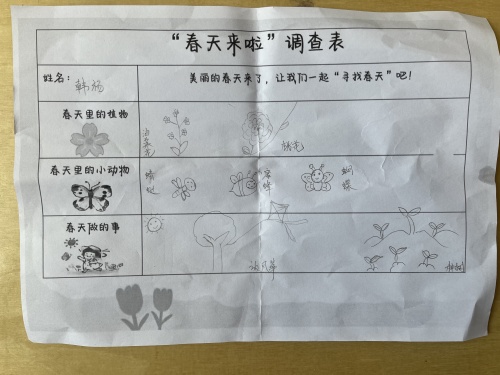 “春天来啦”调查表
姓名：
美丽的春天来了，让我们一起“寻找春天”吧！
春天里的植物
油菜花
桃花
春天里的小动物
蜻蜓
蜜蜂
蝴蝶
春天做的事
放风筝